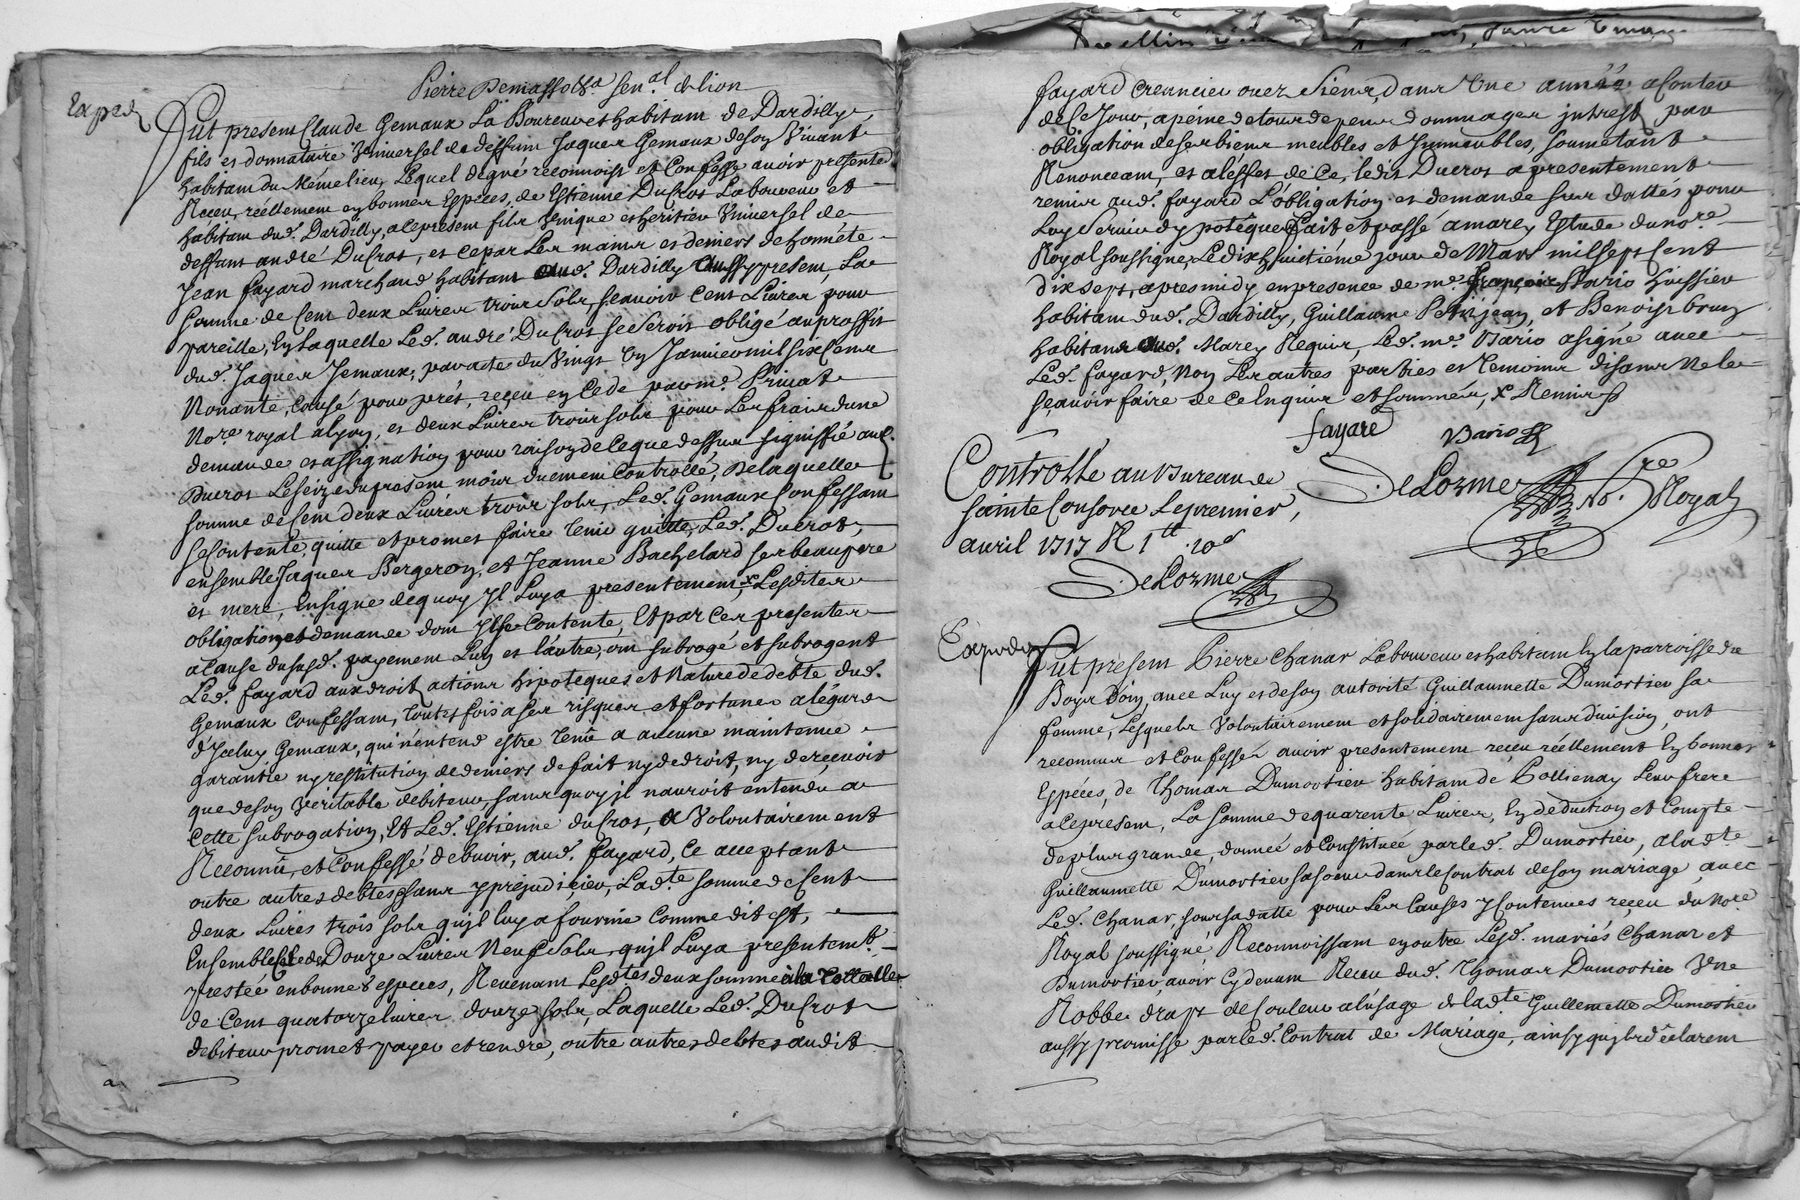 Pierre Demasso sen.al de lion
Exped
Fut present Claude Gemaux La Boureur et habitant de Dardilly,
fils et donnataire Universel de deffunt Jaques Gemaux de son Vivant
habitant du Méme lieu, Lequel de gré reconnoist et Confesse avoir presentem.
Receu, réellement en bonnes Especes, de Estienne DuCros Laboureur et
habitant dud. Dardilly, a ce present fils Unique et héritier Universel de
deffunt andré DuCros, et ce par Les mains et deniers de honnéte
Jean fayard marchand habitant aud. Dardilly aussy present, La
somme de Cent deux Livres trois sols, sçauoir Cent Livres pour
pareille, En Laquelle Led. andré DuCros se seroit obligé au proffit
dud. Jaques Gemaux, par acte du Vingt Un Janvier mil six Cens
Nonante, Causé pour prés, reçeu en Cede par me. Privat
No.re royal a lyon, et deux Livres trois sols pour Les frais d'une
demande et assignation pour raison de ce que dessus signiffié aud.
Ducros Le seize du present mois duement Controllé, De laquelle
somme de Cent deux Livres trois sols, Led. Gemaux Confessant
se Contente, quitte et promet faire tenir quitte, Led. Ducrot,
ensemble Jaques Bergeron, et Jeanne Bachelard ses beaupere
et mere, En signe de quoy Jl Luy a presentement x Lesdites
obligation et demande dont Jl se Contente, Et par Ces presentes
a Cause du susd. payement Luy et l'autre, ont subrogé et subrogent
Led. fayard aux droit, actions hipoteques et Nature de debte dud.
Gemaux Confessant, toutes fois a ses risques et fortunes a légard
d'Jceluy Gemaux, qui n'entend estre tenû a aucune maintenüe
garantie ny restitution de deniers de fait ny de droit, ny de reçevoir
que de son Véritable debiteur, sans quoy jl nauroit entendu a
Cette subrogation, Et Led. Estienne duCros, a Volontairement
Reconnû, et Confessé debvoir, aud. fayard, Ce acceptant
outre autres debtes sans y préjudicier, Lad.te somme de Cent
deux Livres trois sols qu'jl luy a fournie Comme dit est,
Ensemble Celle de Douze Livres Neuf Sols, qu'jl Luy a presentem.t
prestée en bonnes especes, Revenant Lesd.tes deux somme a la Totalle
de Cent quatorze livres douze sols, Laquelle Led. DuCrot
debiteur promet payer et rendre, outre autres debtes audit
fayard Creancier ouer Siens, dans Une année a Conter
de Ce Jour, a peine de tous depens dommages jntrest par
obligation de ses biens meubles et Jmmeubles, soumetant
Renonceant, et aléffet de Ce, led.it Ducros a presentement
remis aud. fayard L'obligation et demande sus dattés pour
Luy Servir dypotéque fait et passé a marcy Estude du no.re
Royal soussigné, Le dixhuictiéme jour de Mars mil sept Cent
dix sept, apres midy en presence de me. françois Vario Huissier
habitant dud. Dardilly, Guillaume Petitjean, et Benoist brun
habitans aud. Marcy Requis, Led. me. Vario a signé avec
Led. fayard, Non Les autres parties et temoins disans Ne le
sçavoir faire de Ce Enquis et sommés, x Remis
fayard Vario
DeLorme No.re Royal
Controllé au Bureau de
sainte Consorce Le premier,
avril 1717 R 1tt 10d
DeLorme
Expedié
Fut present Pierre Chanas Laboureur et habitant En la parroisse de
avec Luy et de son autorité Guillaumette Dumortier sa
femme, Lesquels Volontairement et solidairement sans division, ont
reconnus et Confessé avoir presentement reçeu réellement En bonnes
Espéces, de Thomas Dumortier habitant de Pollienay Leur frere
a Ce present, La somme de quarente Livres, En deduction et Compte
de plus grande, donneé et Constituée par led. Dumortier, a lad.te
Guillaumette Dumortier sa soeur dans le Contrat de son mariage avec
Led. Chanas, sous sa datte pour Les Causes y Contenues reçeu du No.re
Royal soussigné, Reconnoissant en outre Lesd. mariés Chanas et
Dumortier, avoir Cy devant Receu dud. Thomas Dumortier Une
Robbe drapt de Couleur a lúsage de lad.te Guillemette Dumortier
aussy promisse par led. Contrat de Mariage, ainsy qu'jls déclarent